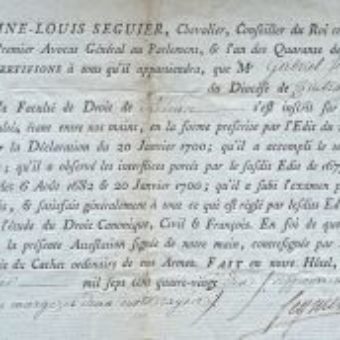 INE-LOUIS SEGUIER, Chevalier, Conseiller du Roi en
Premier Avocat Général au Parlement, & l'un des Quarante de
CERTIFIONS à tous qu'il appartiendra, que Mr Gabriel
du Diocèse de
la Faculté de Droit de s'est inscrit sur
étant entre nos mains, en la forme prescrite par l'Edit du
r la Déclaration du 20 Janvier 1700; qu'il a accompli le
; qu'il a observé les interstices portés par le susdit Edit de 167
des 6 Août 1682 & 20 Janvier 1700; qu'il a subi l'examen p
s, & satisfait généralement à tout ce qui est réglé par lesdits Ed
l'étude du Droit Canonique, Civil & François. En foi de quo
la présente Attestation signée de notre main, contresignée par
it du Cachet ordinaire de nos Armes. FAIT en notre Hôtel,
mil sept cent quatre-vingt
en marge